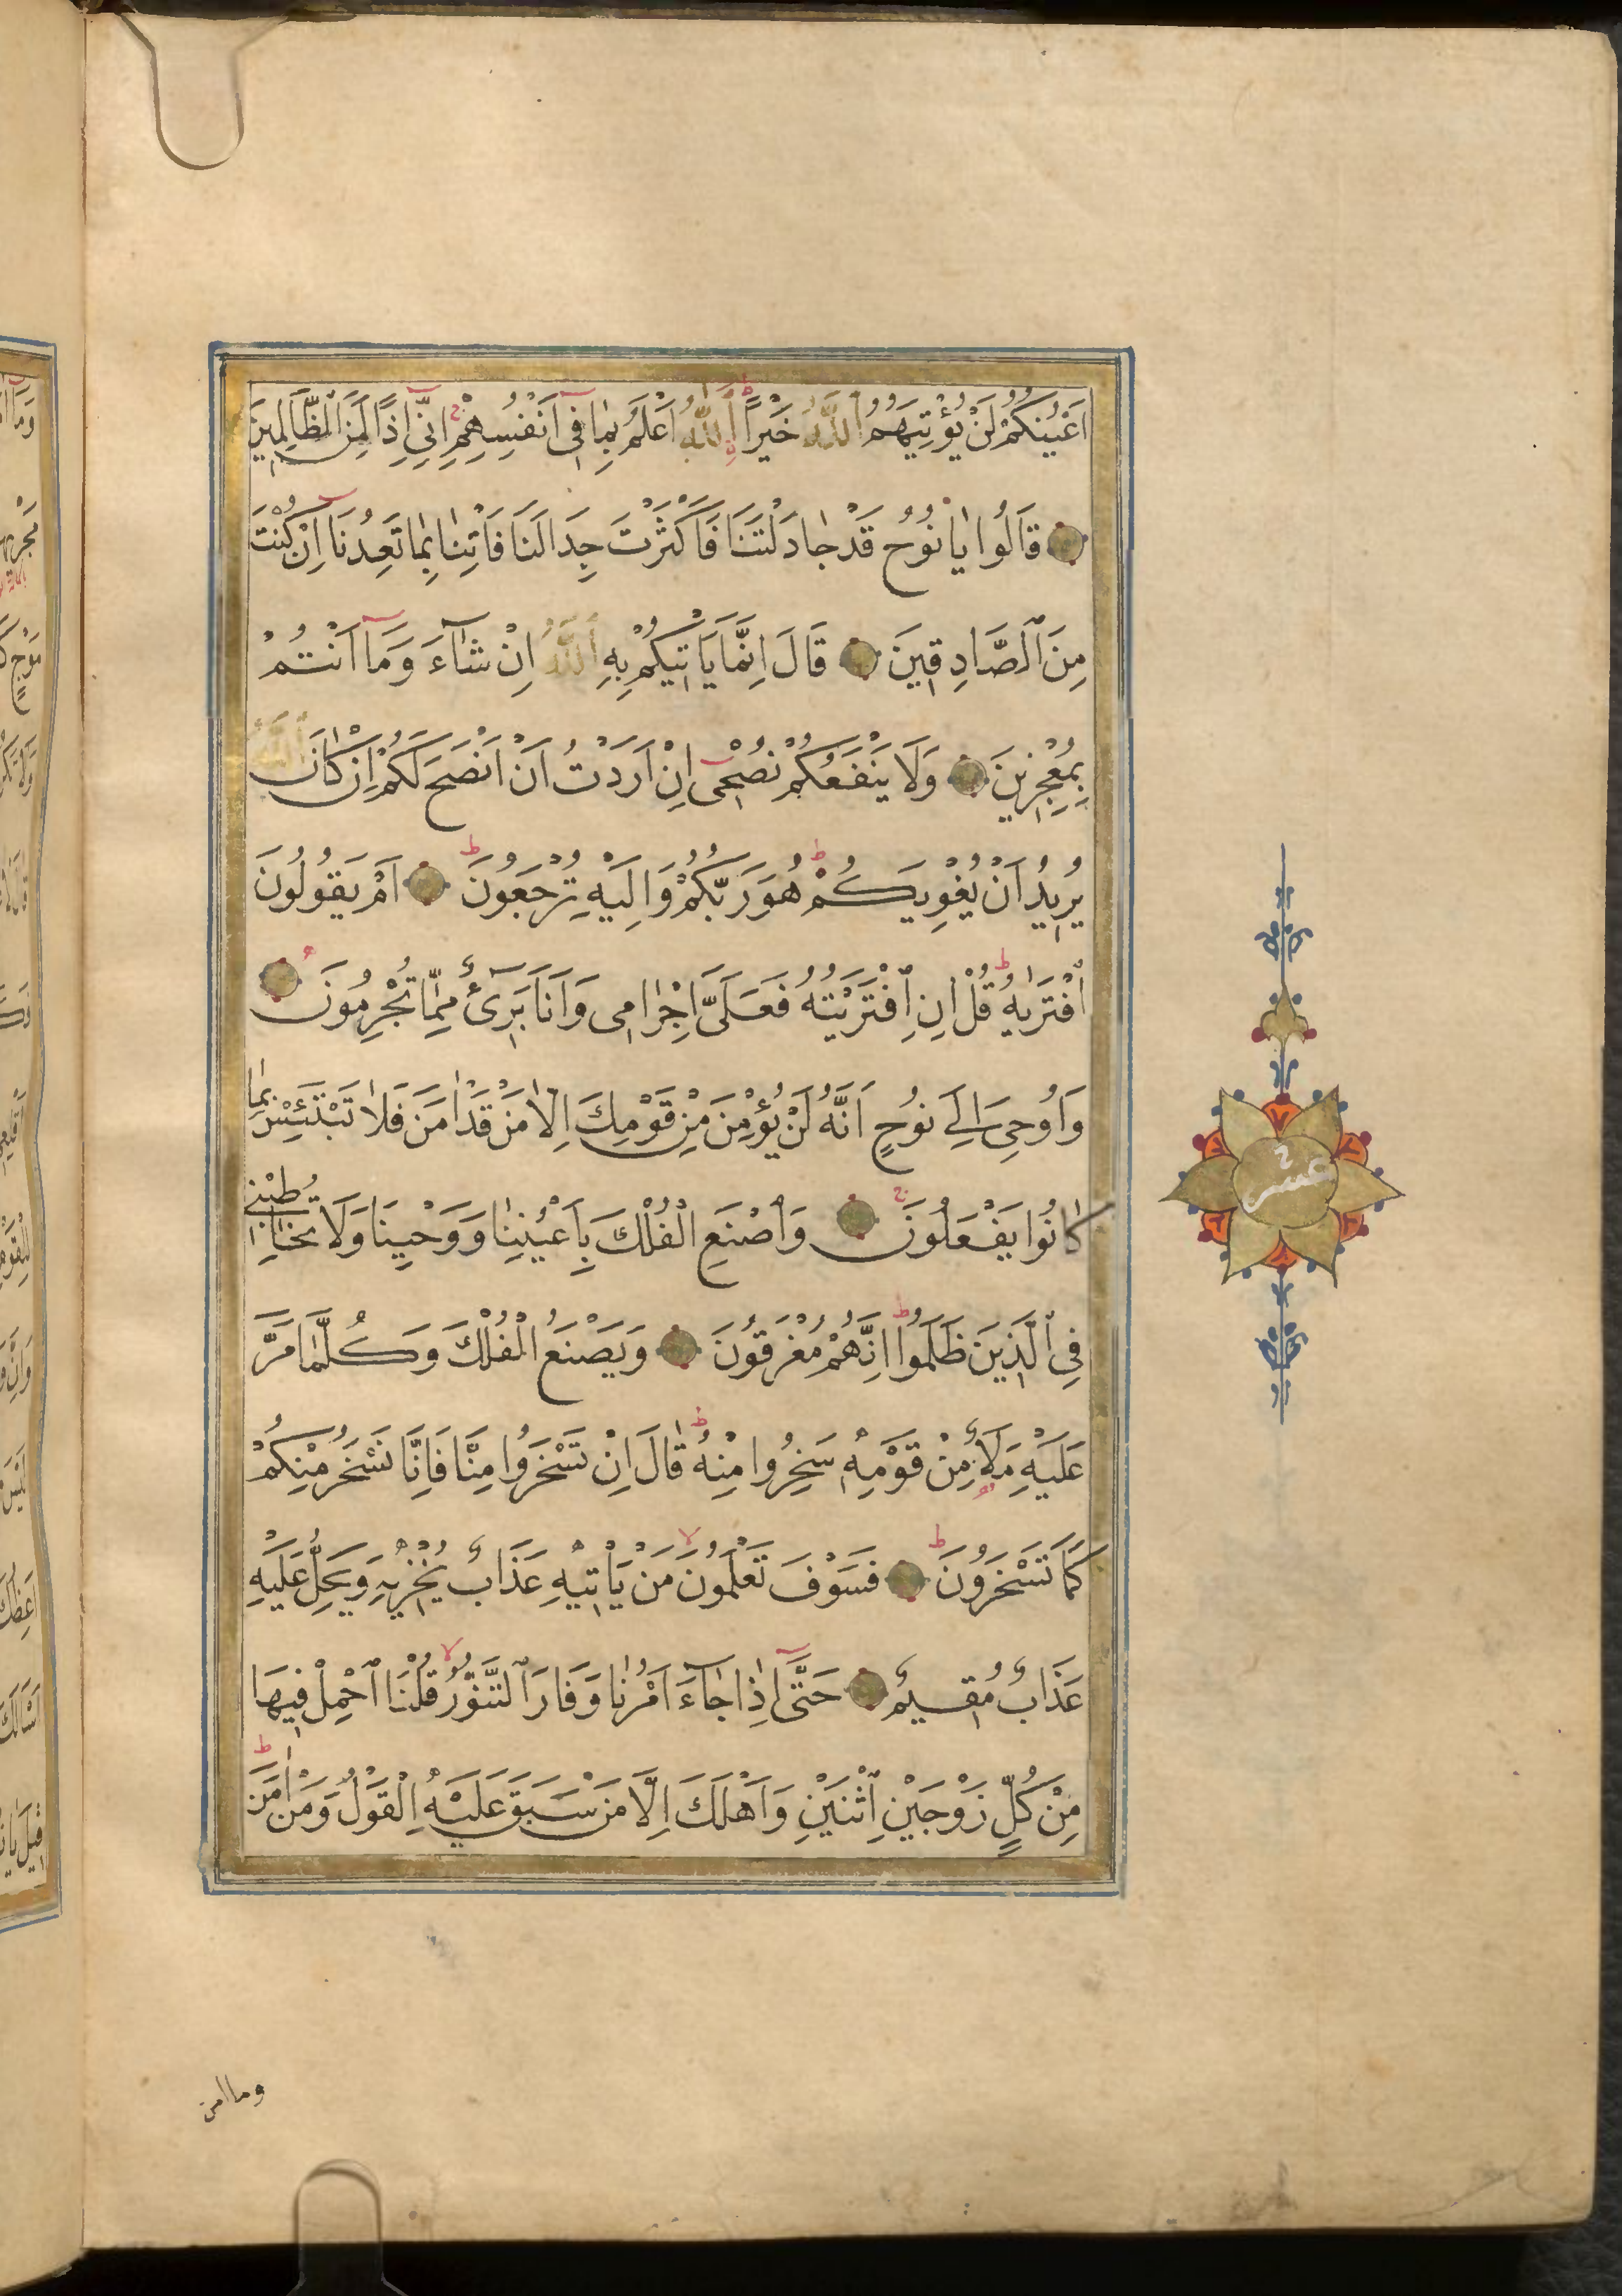 اَعْيُنُكُمْ لَنْ يُؤْتِيَهُمُ اللّٰهُ خَيْراً اَللّٰهُ اَعْلَمُ بِمَا فِى اَنْفُسِهِمْ اِنِّى اِذًا لَمِنَ الظَّالِمِينَ
قَالُوا يَا نُوحُ قَدْ جَادَلْتَنَا فَاَكْثَرْتَ جِدَالَنَا فَاْتِنَا بِمَا تَعِدُنَا اِنْ كُنْتَ
مِنَ الصَّادِقِينَ قَالَ اِنَّمَا يَاْتِيكُمْ بِهِ اللّٰهُ اِنْ شَاءَ وَمَا اَنْتُمْ
بِمُعْجِزِينَ وَلَا يَنْفَعُكُمْ نُصْحِى اِنْ اَرَدْتُ اَنْ اَنْصَحَ لَكُمْ اِنْ كَانَ اللّٰهُ
يُرِيدُ اَنْ يُغْوِيَكُمْ هُوَ رَبُّكُمْ وَاِلَيْهِ تُرْجَعُونَ اَمْ يَقُولُونَ
افْتَرٰيهُ قُلْ اِنِ افْتَرَيْتُهُ فَعَلَىَّ اِجْرَامِى وَاَنَا بَرِىءٌ مِمَّا تُجْرِمُونَ
وَاُوحِىَ اِلٰى نُوحٍ اَنَّهُ لَنْ يُؤْمِنَ مِنْ قَوْمِكَ اِلَّا مَنْ قَدْ اٰمَنَ فَلَا تَبْتَئِسْ بِمَا
كَانُوا يَفْعَلُونَ وَاصْنَعِ الْفُلْكَ بِاَعْيُنِنَا وَوَحْيِنَا وَلَا تُخَاطِبْنِى
فِى الَّذِينَ ظَلَمُوا اِنَّهُمْ مُغْرَقُونَ وَيَصْنَعُ الْفُلْكَ وَكُلَّمَا مَرَّ
عَلَيْهِ مَلَاٌ مِنْ قَوْمِهِ سَخِرُوا مِنْهُ قَالَ اِنْ تَسْخَرُوا مِنَّا فَاِنَّا نَسْخَرُ مِنْكُمْ
كَمَا تَسْخَرُونَ فَسَوْفَ تَعْلَمُونَ مَنْ يَاْتِيهِ عَذَابٌ يُخْزِيهِ وَيَحِلُّ عَلَيْهِ
عَذَابٌ مُقِيمٌ حَتّٰى اِذَا جَاءَ اَمْرُنَا وَفَارَ التَّنُّورُ قُلْنَا احْمِلْ فِيهَا
مِنْ كُلٍّ زَوْجَيْنِ اثْنَيْنِ وَاَهْلَكَ اِلَّا مَنْ سَبَقَ عَلَيْهِ الْقَوْلُ وَمَنْ اٰمَنَ
عشر
وما امن